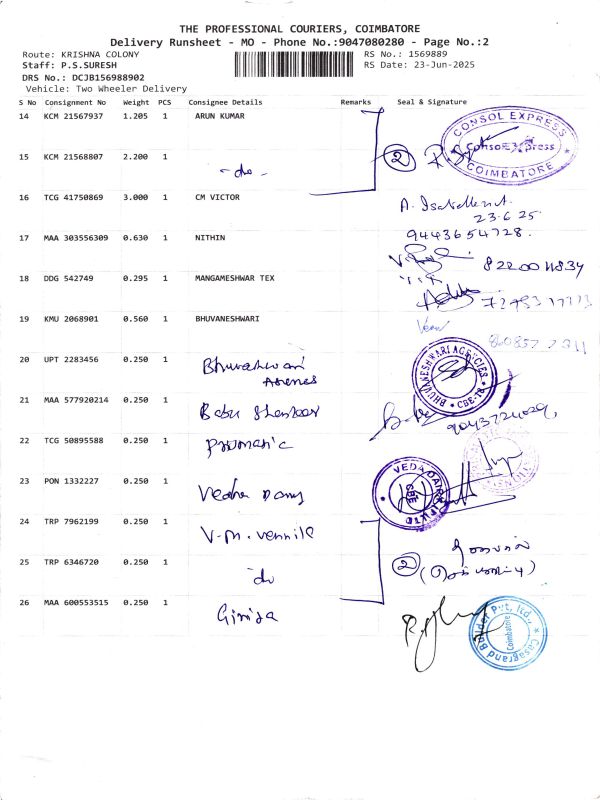 THE PROFESSIONAL COURIERS, COIMBATORE
Delivery Runsheet - MO - Phone No.:9047080280 - Page No.:2
Route: KRISHNA COLONY
Staff: P.S.SURESH
DRS No.: DCJB156988902
Vehicle: Two Wheeler Delivery
RS No.: 1569889
RS Date: 23-Jun-2025
S No Consignment No Weight PCS Consignee Details Remarks Seal & Signature
14 KCM 21567937 1.205 1 ARUN KUMAR
CONSOL EXPRESS
COIMBATORE
15 KCM 21568807 2.200 1 -do- 2
16 TCG 41750869 3.000 1 CM VICTOR
23.6.25
9443654728
17 MAA 303556309 0.630 1 NITHIN
18 DDG 542749 0.295 1 MANGAMESHWAR TEX
19 KMU 2068901 0.560 1 BHUVANESHWARI
20 UPT 2283456 0.250 1 Bhuvaneshwari
BHUVANESHWARI AGENCIES
CBE-18
21 MAA 577920214 0.250 1 Babu Shankar
22 TCG 50895588 0.250 1
23 PON 1332227 0.250 1 Veda Dairy
VEDA DAIRY
CBE
24 TRP 7962199 0.250 1 V.M. Vennila
25 TRP 6346720 0.250 1 do 2
26 MAA 600553515 0.250 1 Girija
Casagrand Builder Pvt. Ltd.,
Coimbatore